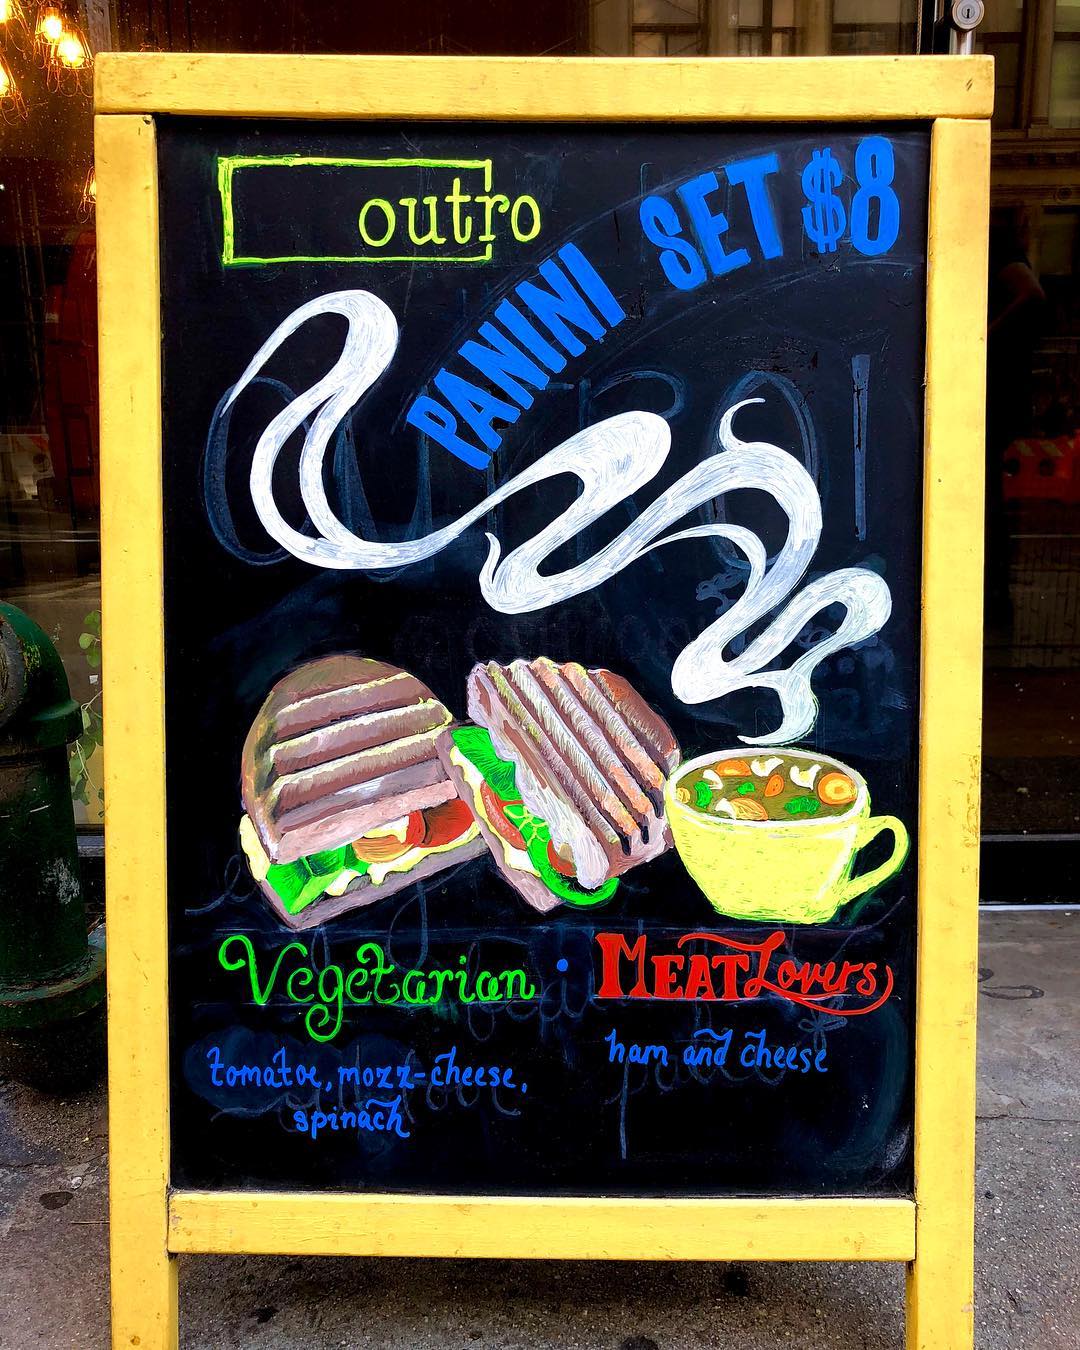 outro
PANINI SET $8
Vegetarian : MEAT Lovers
tomatoe, mozz-cheese,
spinach
ham and cheese